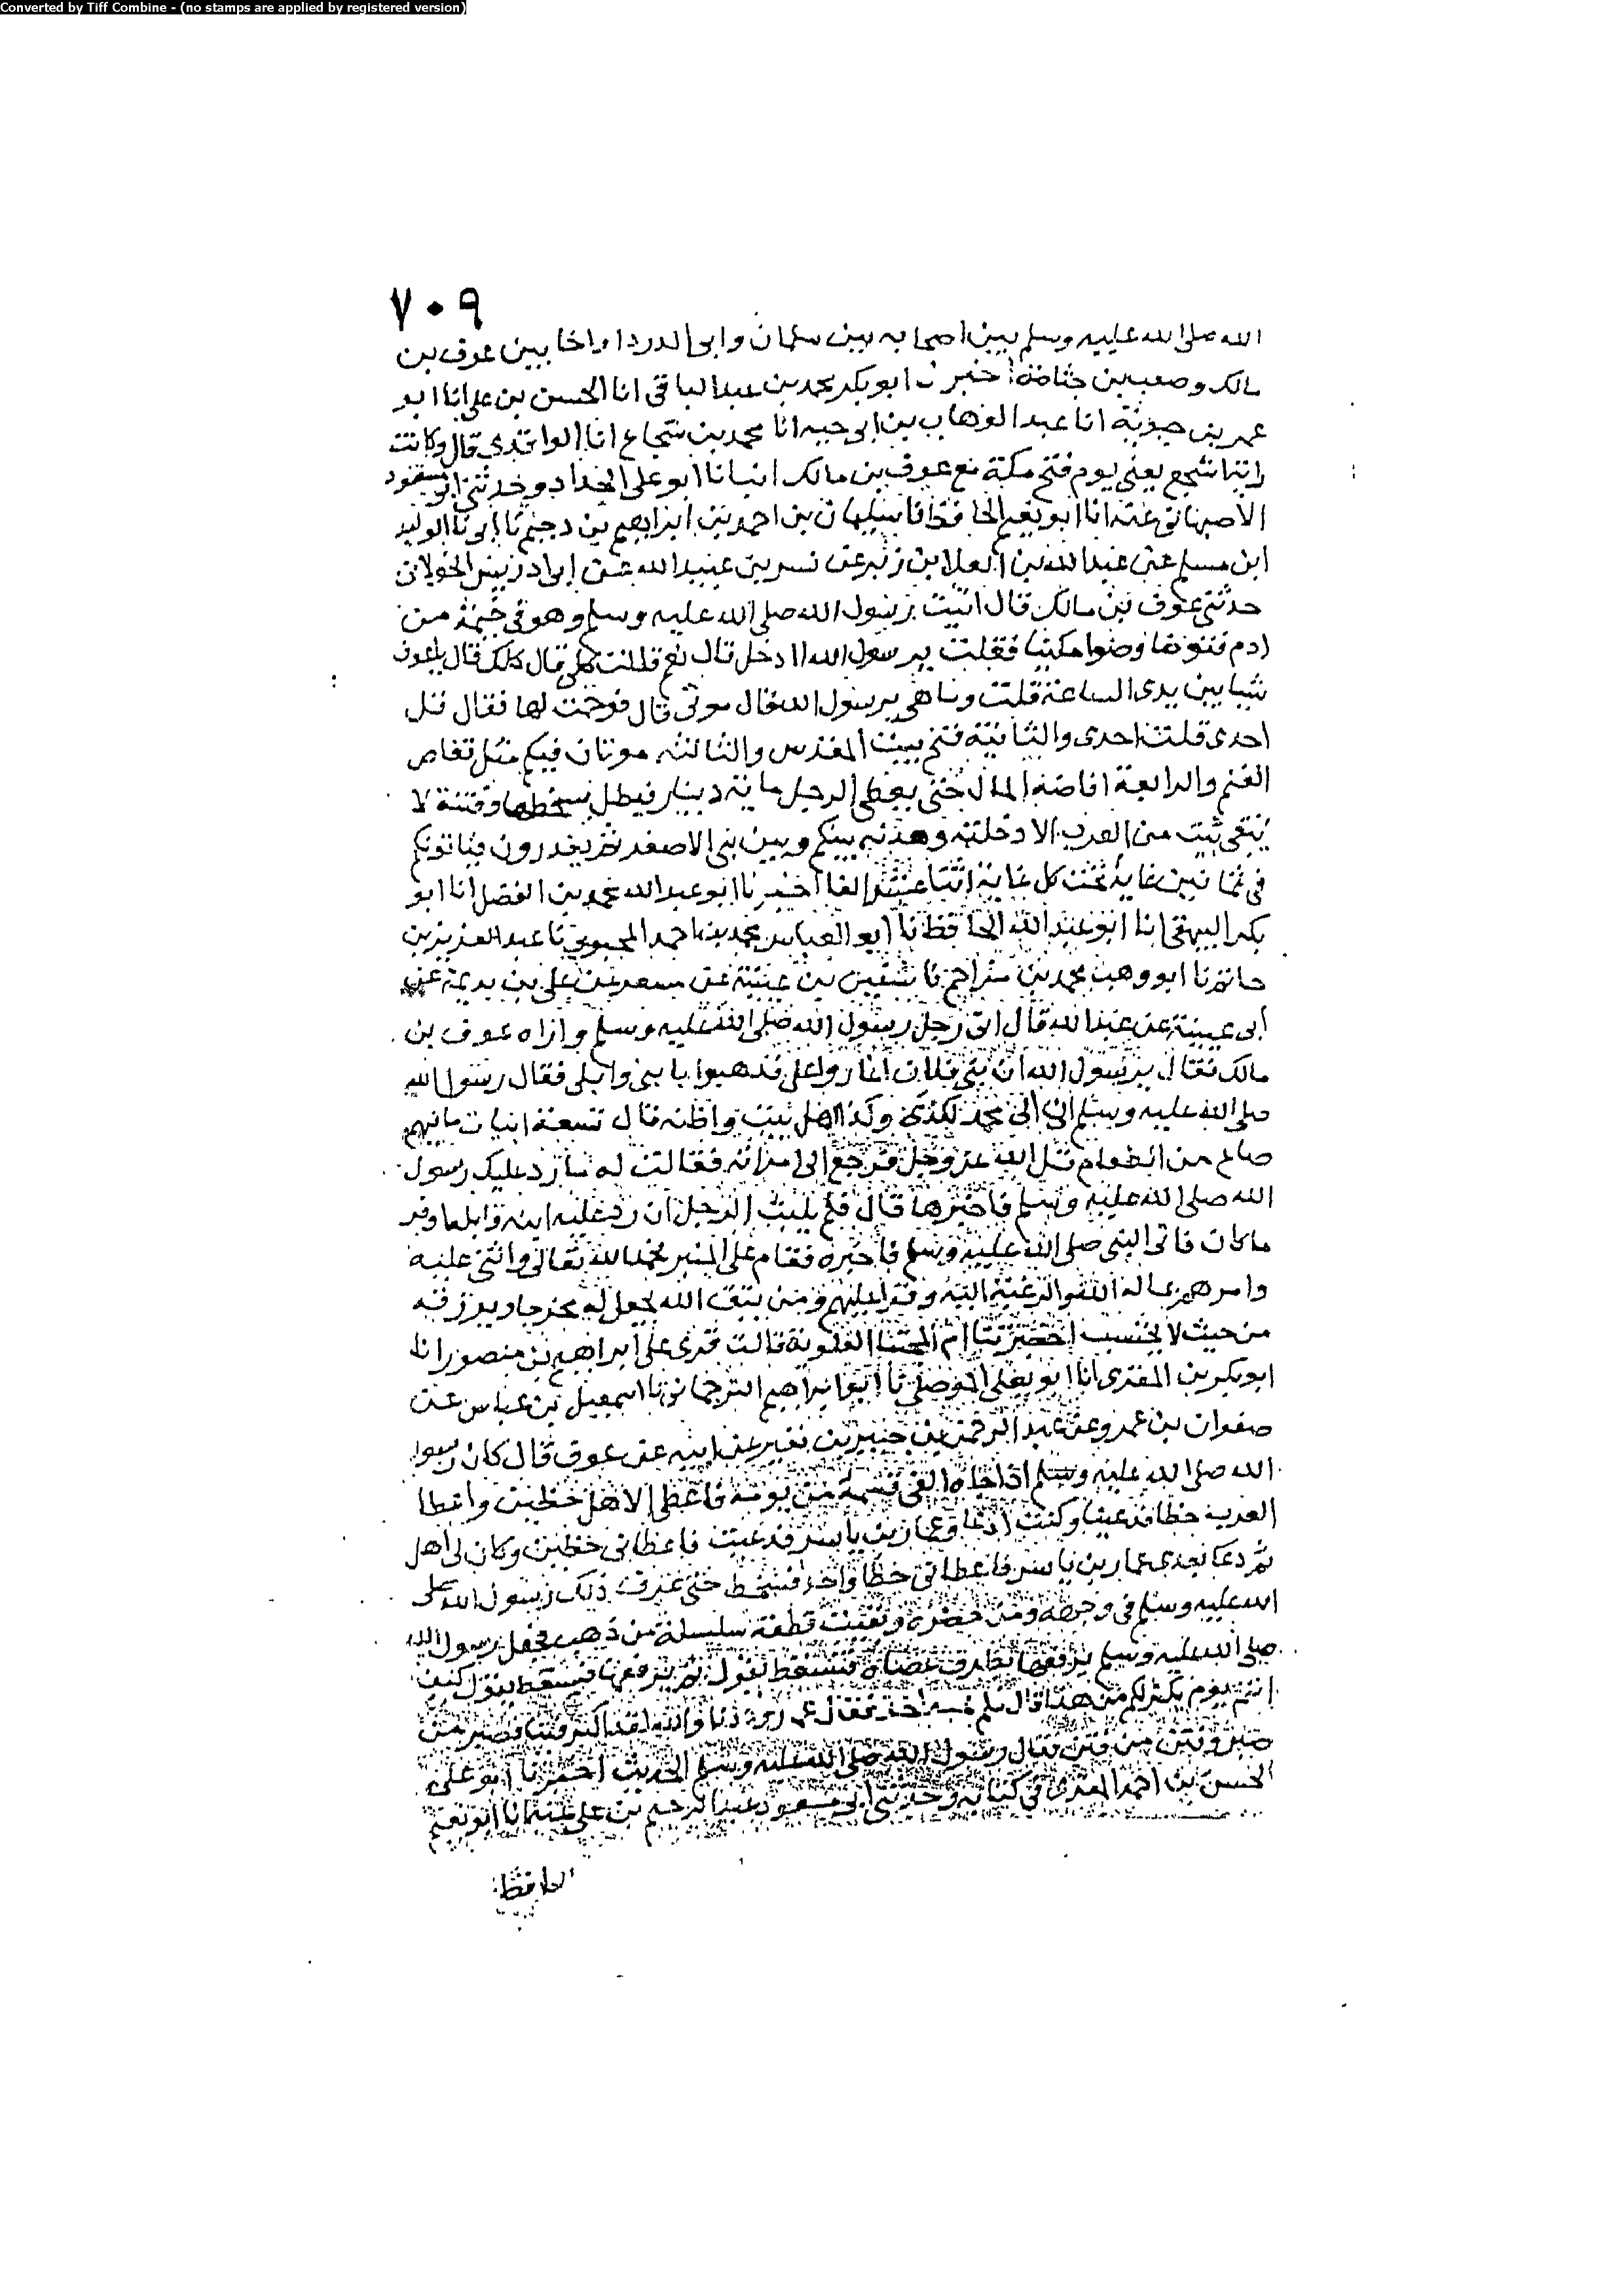 Converted by Tiff Combine - (no stamps are applied by registered version)
٧٠٩
الله صلى الله عليه وسلم بين اصحابه بين سلمان وابى الدردا واخا بين عوف بن
مالك وصعب بن جثامة اخبرنا ابو بكر محمد بن عبد الباقى انا الحسن بن على انا ابو
عمر بن حيوية انا عبد الوهاب بن ابى حيه انا محمد بن شجاع انا الواقدى قال وكانت
راية اشجع يعنى يوم فتح مكة مع عوف بن مالك انبانا ابو على الحداد وحدثنى ابو مسعود
الاصبهانى عنه انا ابو نعيم الحافظ نا سليمان بن احمد بن ابراهيم بن دحيم نا ابى نا الوليد
ابن مسلم عن عبد الله بن العلا بن زبر عن بسر بن عبيد الله عن ابى ادريس الخولانى
حدثنى عوف بن مالك قال اتيت رسول الله صلى الله عليه وسلم وهو فى خيمة من
ادم فتوضا وضوا مكيثا فقلت يرسول الله ادخل قال نعم قلت كلى قال كلك قال ياعوف
ستا بين يدى الساعة قلت وما هى يرسول الله قال موتى قال فوجمت لها فقال قل
احدى قلت احدى والثانية فتح بيت المقدس والثالثه موتان فيكم مثل قعاص
الغنم والرابعة افاضة المال حتى يعطى الرجل ماية دينار فيظل يسخطها وفتنة لا
يبقى بيت من العرب الا دخلته وهدنه بينكم وبين بنى الاصفر ثم يغدرون فياتونكم
فى ثمانين غاية تحت كل غاية اثنا عشر الفا اخبرنا ابو عبد الله محمد بن الفضل انا ابو
بكر البيهقى انا ابو عبد الله الحافظ نا ابو العباس محمد بن احمد المحبوبى نا عبد العزيز بن
حاتم نا ابو وهب محمد بن مزاحم نا سفين بن عيينة عن مسعر عن على بن بذيمة عن
ابى عبيدة عن عبد الله قال اتى رجل رسول الله صلى الله عليه وسلم واراه عوف بن
مالك فقال يرسول الله ان بنى فلان اغاروا على فذهبوا بابنى وابلى فقال رسول الله
صلى الله عليه وسلم ان ال محمد لكذى وكذا اهل بيت واظنه قال تسعة ابيات مافيهم
صاع من الطعام سل الله عز وجل فرجع الى امراته فقالت له مارد عليك رسول
الله صلى الله عليه وسلم فاخبرها قال فلم يلبث الرجل ان رد عليه ابنه وابله اوفر
ماكان فاتى النبى صلى الله عليه وسلم فاخبره فقام على المنبر فحمد الله تعالى واثنى عليه
وامرهم بمسالة الله والرغبة اليه وقرا عليهم ومن يتق الله يجعل له مخرجا ويرزقه
من حيث لا يحتسب اخبرتنا ام المجتبا العلوية قالت قرى على ابراهيم بن منصور انا
ابو بكر بن المقرى انا ابو يعلى الموصلى نا ابو ابراهيم الترجمانى نا اسمعيل بن عياش عن
صفوان بن عمرو عن عبد الرحمن بن جبير بن نفير عن ابيه عن عوف قال كان رسول
الله صلى الله عليه وسلم اذا جاه الفى قسمه من يومه فاعطى الاهل حظين واعطا
العزب حظا فدعينا وكنت ادعا قبل عمار بن ياسر فدعيت فاعطانى حظين وكان لى اهل
ثم دعا بعدى عمار بن ياسر فاعطا حظا واحدا فسخط حتى عرف ذلك رسول الله صلى
الله عليه وسلم فى وجهه ومن حضره وبقيت قطعة سلسلة من ذهب فجعل رسول الله
صلى الله عليه وسلم يرفعها بطرف عصاه فتسقط ثم يرفعها فتسقط يقول كيف
انتم يوم يكثر لكم من هذا قال فلم يجبه احد فقال عمار وددنا والله لقد اكثر فصبر من
صبر وفتن من فتن فقال رسول الله صلى الله عليه وسلم الحديث اخبرنا ابو على
الحسن بن احمد المقرى فى كتابه وحدثنى ابو مسعود عبد الرحيم بن على عنه انا ابو نعيم
الحافظ